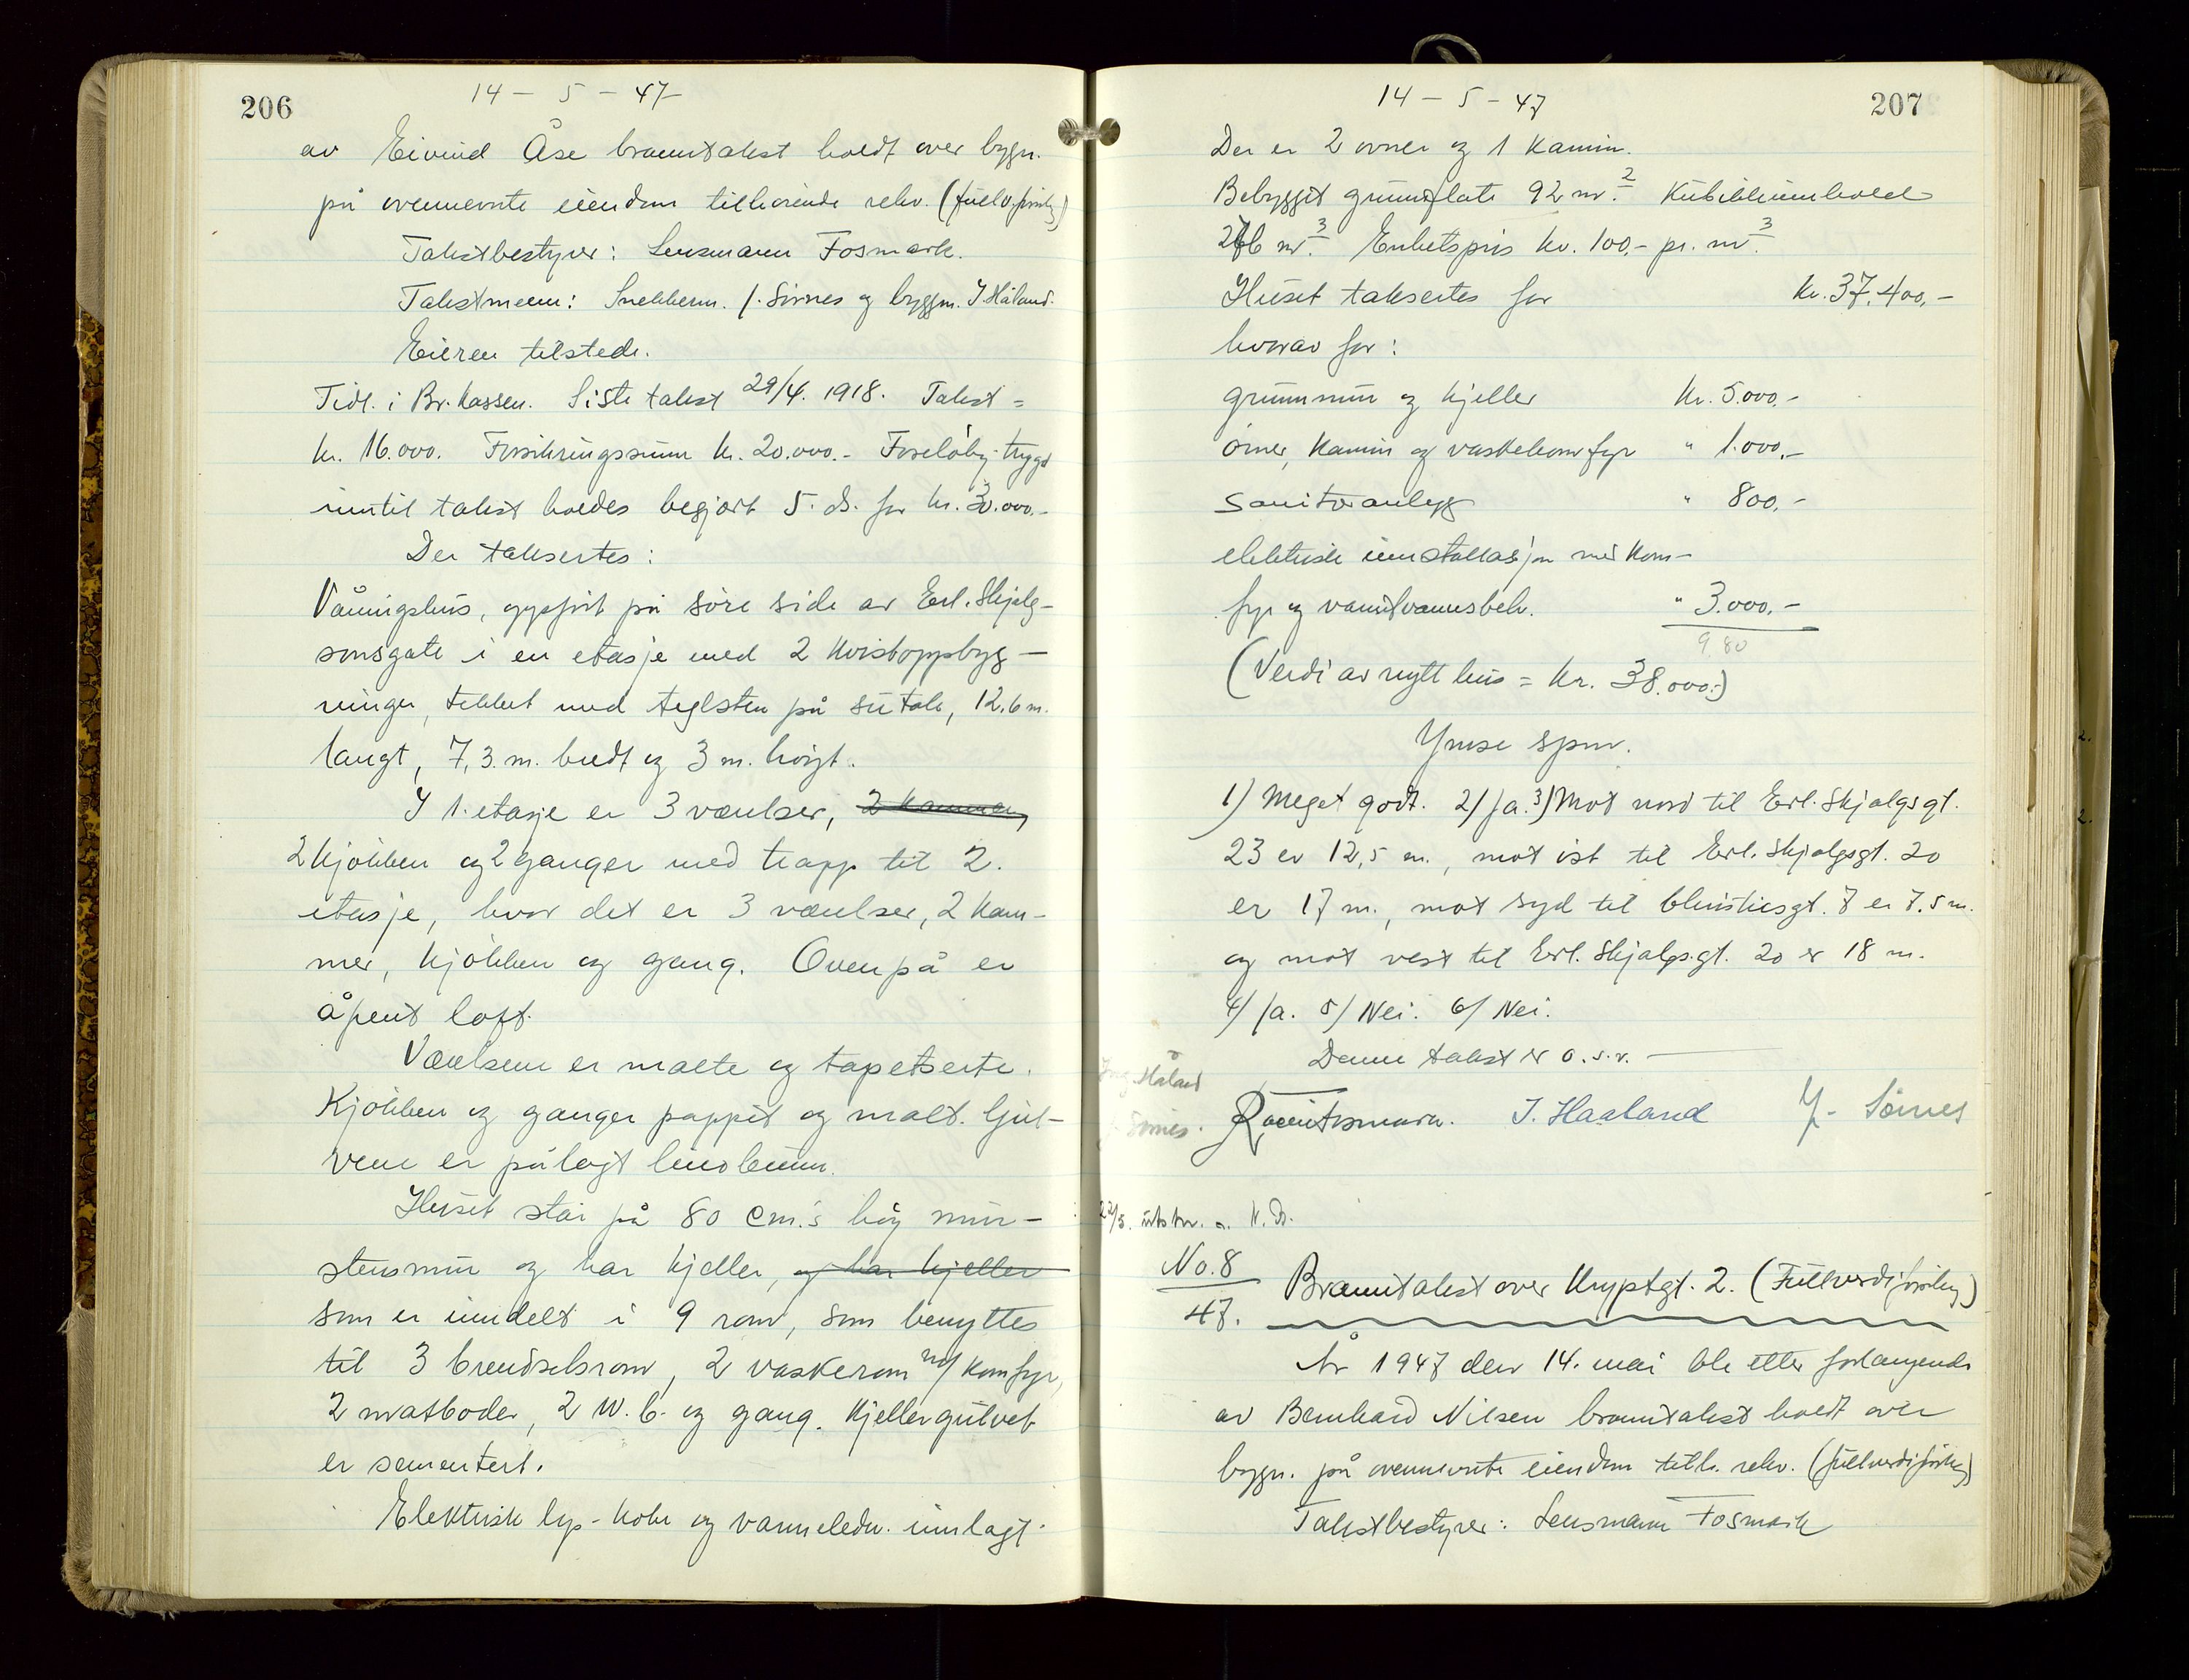 206
14 - 5 - 47
av Eivind Åse branntakst holdt over bygn.
på ovennevnte eiendom tilhørende rekv. (fullv.forsikrg)
Takstbestyrer: Lensmann Fosmark.
Takstmenn: Snekkerm. J. Sirnes og byggm. I. Håland.
Eieren tilstede.
Tidl. i Br.kassen. Siste takst 29/4. 1918. Takst =
kr. 16.000. Forsikringssum kr. 20.000.- Foreløbig trygd
inntil takst holdes begjært 5. ds. for kr. 30.000.-
Der taksertes:
Våningshus, oppført på søre side av Erl. Skjalg-
sonsgate i en etasje med 2 kvistoppbyg-
ninger, tekket med teglsten på sutak, 12.6 m.
langt, 7,3. m. bredt og 3 m. høigt.
I 1. etasje er 3 værelser, 2 kammer,
2 kjøkken og 2 ganger med trapp til 2.
etasje, hvor det er 3 værelser, 2 kam-
mer, kjøkken og gang. Ovenpå er
åpent loft.
Værelsene er malte og tapetserte.
Kjøkken og ganger pappet og malt. Gul-
vene er pålagt linoleum.
Huset står på 80 cm.s høy mur-
stensmur og har kjeller, og har kjeller
som er inndelt i 9 rom, som benyttes
til 3 brendselsrom, 2 vaskerom m/ komfyr,
2 matboder, 2 W.C. og gang. Kjellergulvet
er sementert.
Elektrisk lys- koke og vannledn. innlagt.
207
14 - 5 - 47
Der er 2 ovner og 1 kamin.
Bebygget grunnflate 92 m.² Kubikkinnhold
276 m.³ Enhetspris kr. 100.- pr. m.³
Huset takseres for kr. 37.400,-
hvorav for:
grunnmur og kjeller kr. 5.000.-
ovner, kamin og vaskekomfyr " 1.000.-
sanitæranlegg " 800.-
elektrisk innstallasjon med kom-
fyr og varmtvannsbeh. " 3.000.-
9.80
(Verdi av nytt hus = kr. 38.000.-)
Ymse spm.
1) Meget godt. 2) Ja. 3) Mot nord til Erl. Skjalgsgt.
23 er 12,5 m., mot øst til Erl. Skjalgsgt. 20
er 17 m., mot syd til Christiesgt. 7 er 7.5 m.
og mot vest til Erl. Skjalgs.gt. 20 er 18 m.
4/ Ja. 5/ Nei. 6/ Nei.
Denne takst er o.s.v.
Ing. Håland
J. Sirnes.
I. Haaland J. Sirnes
22/5. utskr. s. N. Br.
No. 8
47.
Branntakst over Kryptgt. 2. (Fullverdiforsikrg)
År 1947 den 14. mai ble etter forlangende
av Bernhard Nilsen branntakst holdt over
bygn. på ovennevnte eiendom tilh. rekv. (fullverdiforsikrg)
Takstbestyrer: Lensmann Fosmark